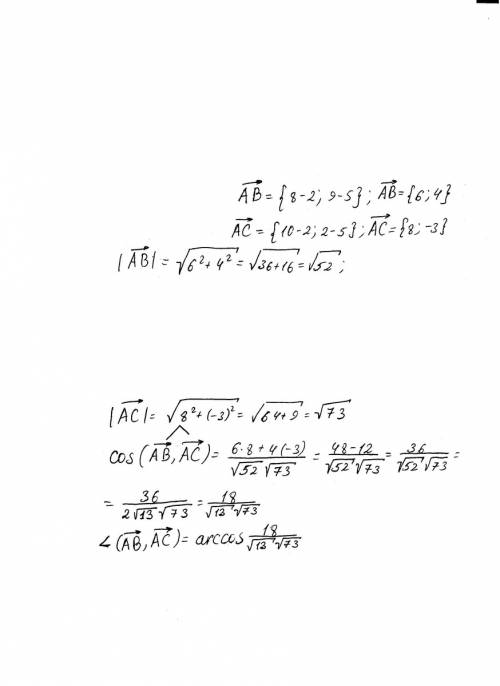 AB = {8-2; 9-5}; AB={6;4}
AC = {10-2; 2-5}; AC={8; -3}
|AB| = √(6²+4²) = √(36+16) = √52;
|AC| = √(8²+(-3)²) = √(64+9) = √73
cos(AB, AC) = (6·8+4(-3))/(√52 √73) = (48-12)/(√52 √73) = 36/(√52 √73) =
= 36/(2√13 √73) = 18/(√12 √73)
∠(AB, AC) = arccos 18/(√12 √73)